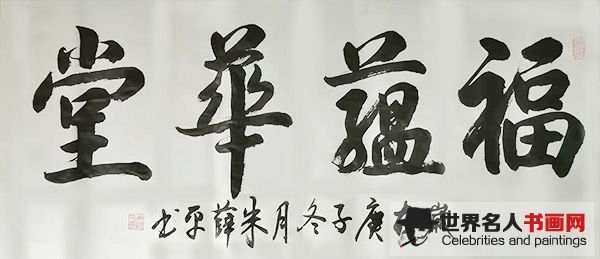 福蘊華堂
在庚子冬月朱薛平书
世界名人书画网
Celebrities and paintings